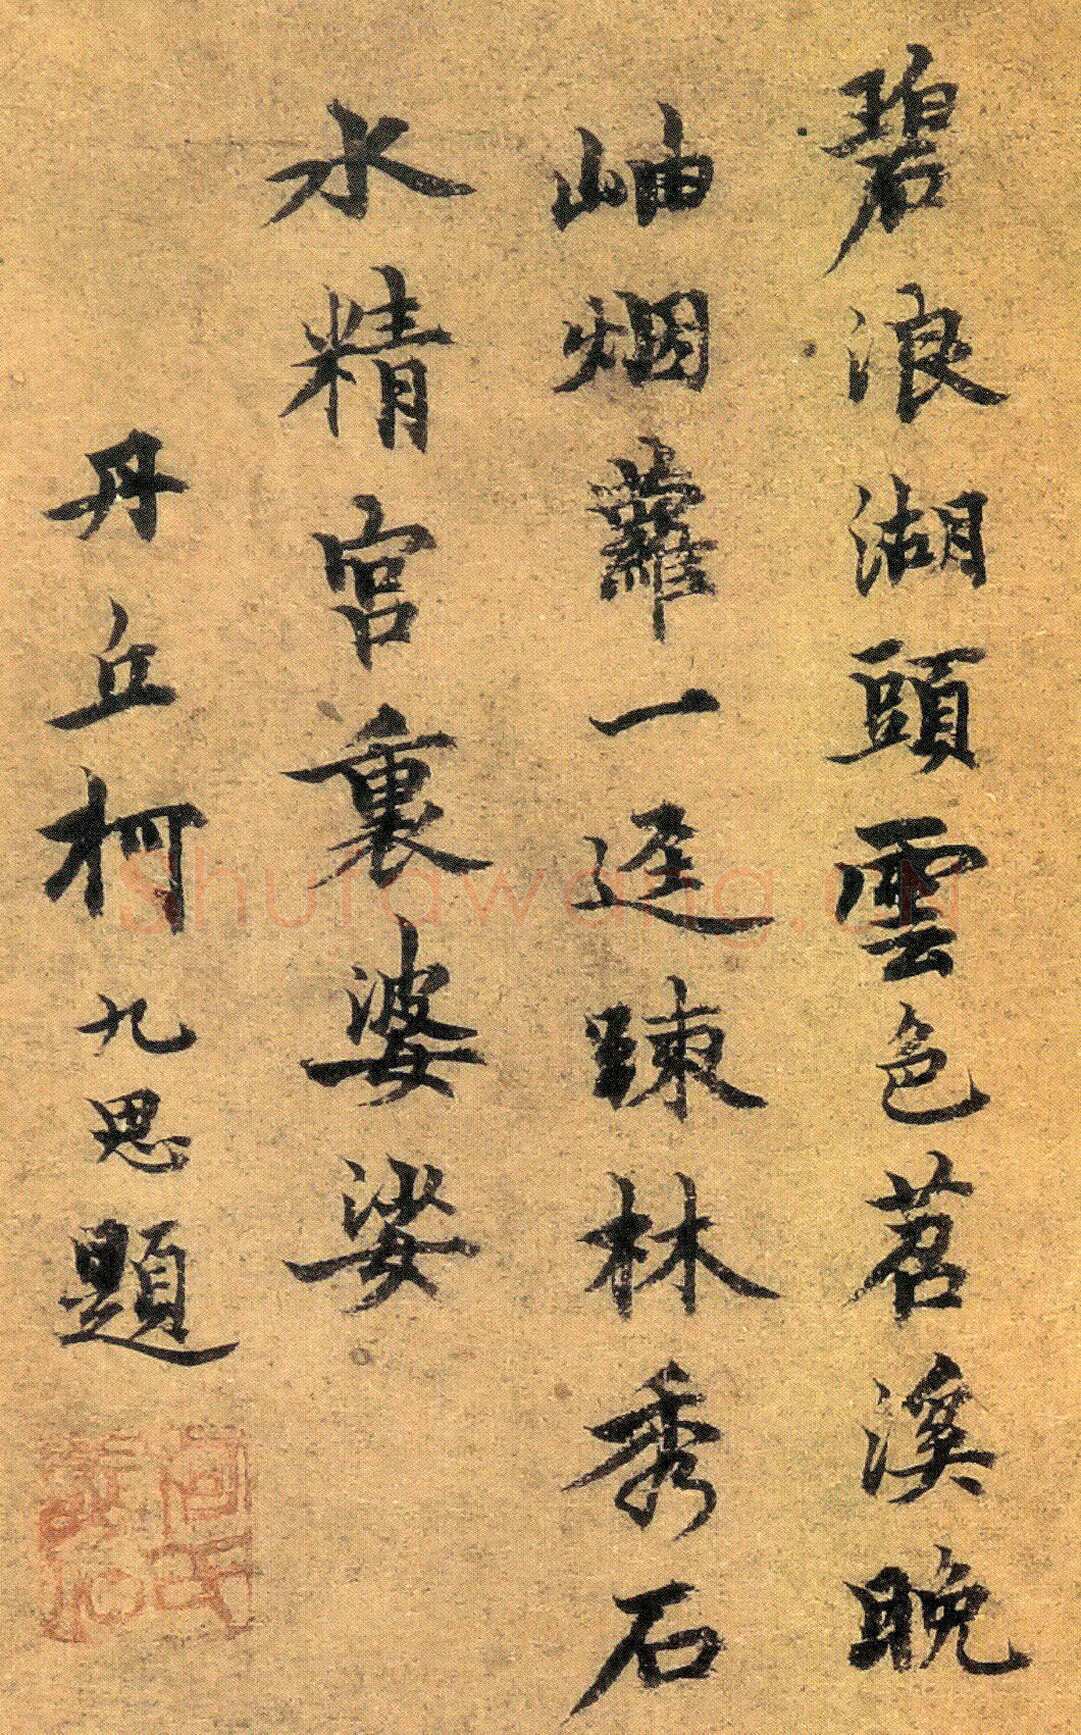 碧浪湖頭雲色苕溪晚
岫烟蘿一迳踈林秀石
水精宫裏婆娑
丹丘柯九思題
Shufawang.cn